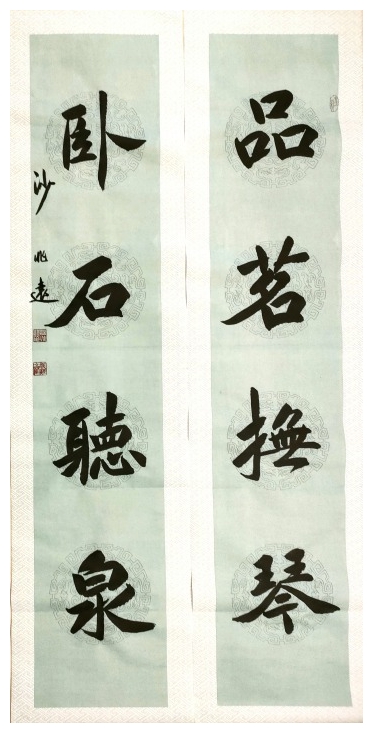 品茗撫琴
卧石聽泉
沙兆遠